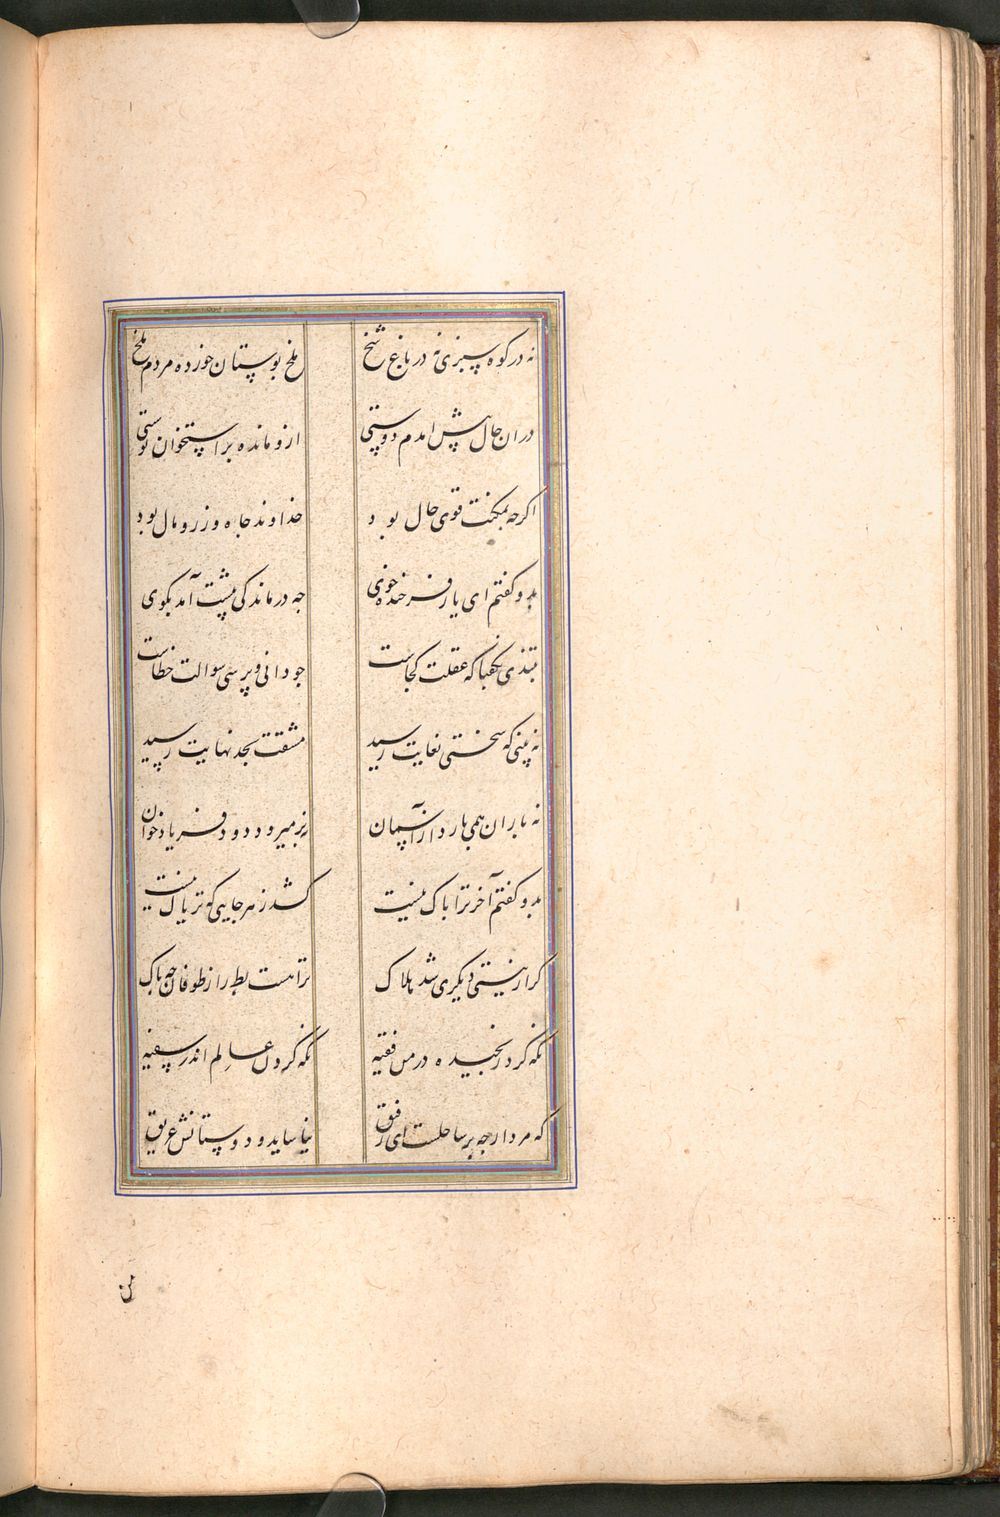 نه در کوه سبزی نه در باغ شخ ملخ بوستان خورده مردم ملخ
دران حال پیش امدم دوستی ازو مانده بر استخوان پوستی
اکرچه بمکنت قوی حال بود خداوند جاه و زر و مال بود
بدو کفتم ای یار فرخنده خوی چه درماندکی پیشت آمد بکوی
بتندی بکفتا که عقلت کجاست چو دانی و پرسی سوالت خطاست
نه بینی که سختی بغایت رسید مشقت بحد نهایت رسید
نه باران همی بارد از آسمان نه بر میرود دود فریاد خوان
بدو کفتم آخر ترا باک نیست کشد زهر جایی که تریاک نیست
کر از نیستی دیکری شد هلاک ترا هست بط را ز طوفان چه باک
نکه کرد رنجیده در من فقیه نکه کردن عالم اندر سفیه
که مرد ارچه بر ساحلست ای رفیق نیاساید و دوستانش غریق